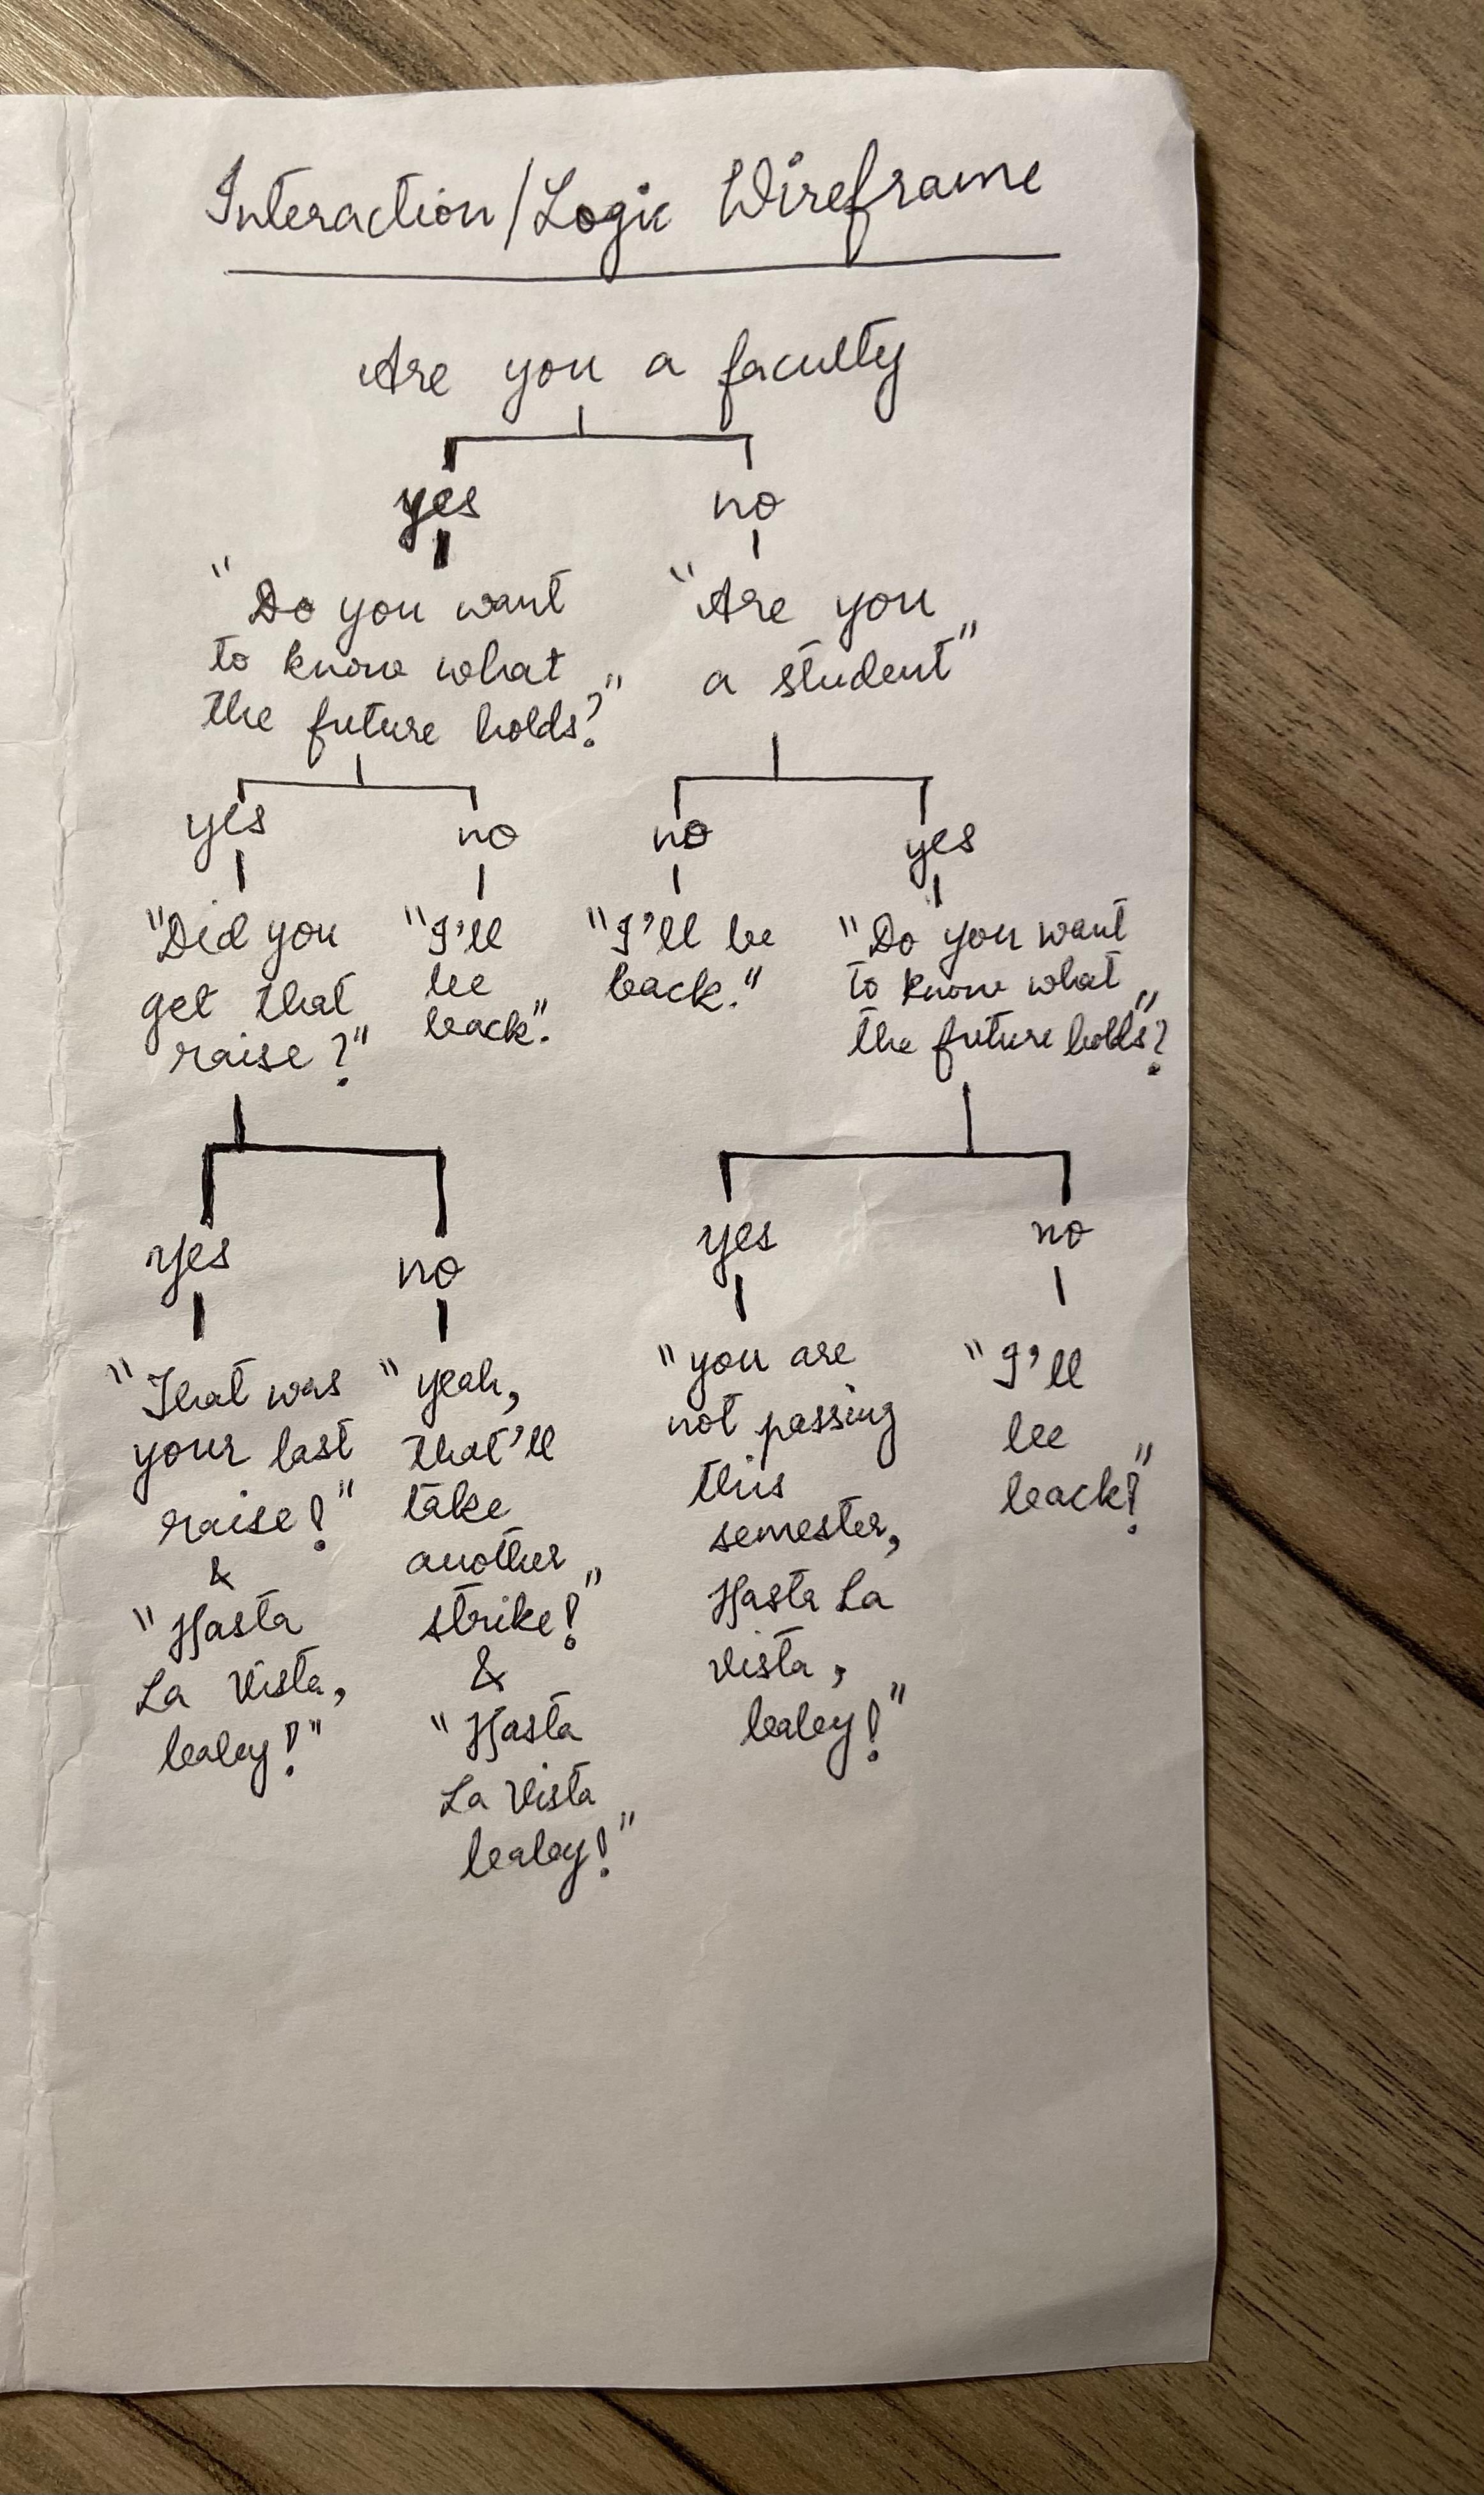 Interaction/Logic Wireframe
Are you a faculty
yes
no
"Do you want
to know what
the future holds?"
"Are you
a student"
yes
no
no
yes
"Did you
get that
raise?"
"I'll
be
back".
"I'll be
back."
"Do you want
to know what
the future holds"?
yes
no
yes
no
"That was
your last
raise!"
&
"Hasta
La Vista,
baby!"
"yeah,
that'll
take
another
strike!"
&
"Hasta
La Vista
baby!"
"you are
not passing
this
semester,
Hasta La
Vista,
baby!"
"I'll
be
back!"